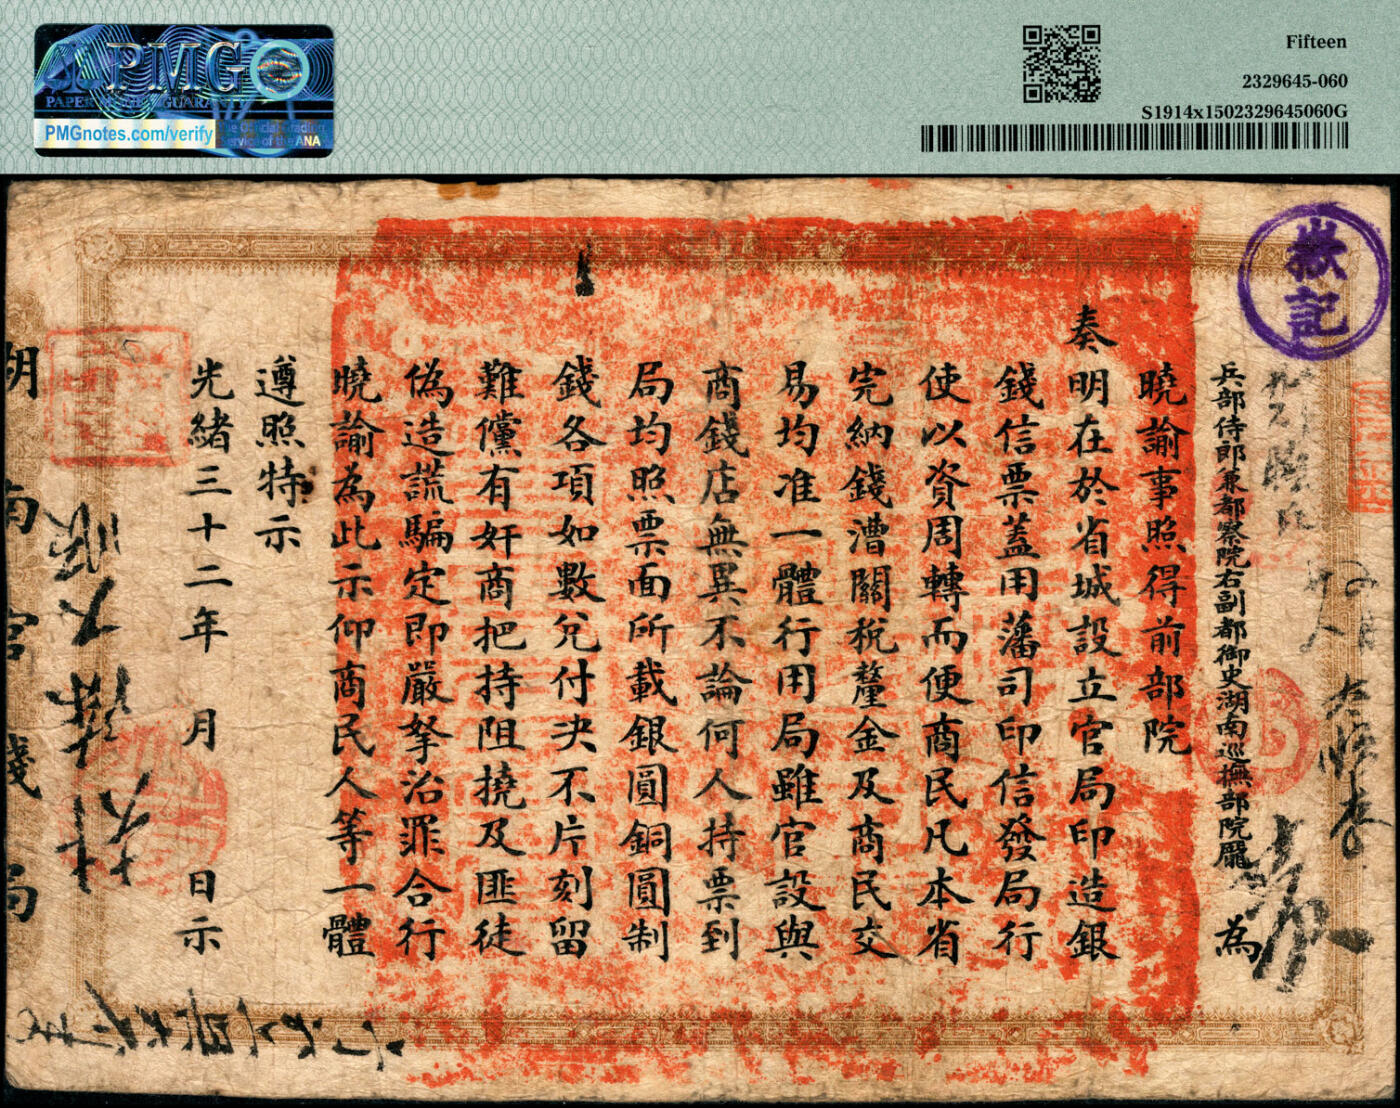 PMG
PAPER MONEY GUARANTY
PMGnotes.com/verify
Fifteen
2329645-060
S1914x1502329645060G
嶽記
兵部侍郎兼都察院右副都御史湖南巡撫部院龐 為
曉諭事照得前部院
奏明在於省城設立官局印造銀
錢信票蓋用藩司印信發局行
使以資周轉而便商民凡本省
完納錢漕關稅釐金及商民交
易均准一體行用局雖官設與
商錢店無異不論何人持票到
局均照票面所載銀圓銅圓制
錢各項如數兌付決不片刻留
難儻有奸商把持阻撓及匪徒
偽造謊騙定即嚴拏治罪合行
曉諭為此示仰商民人等一體
遵照特示
光緒三十二年 月 日示
湖南官錢局